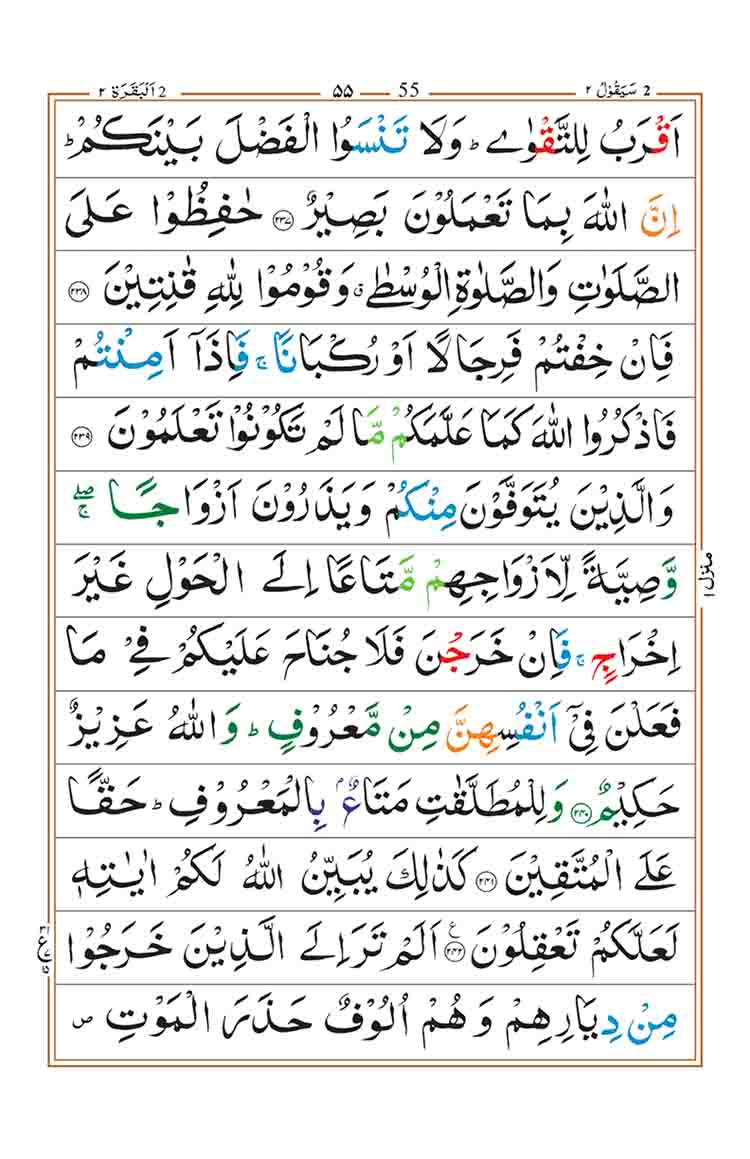 2 سَيَقُوْلُ ٢ 55 ۵۵ 2 اَلْبَقَرَة ٢
اَقْرَبُ لِلتَّقْوٰىؕ وَلَا تَنْسَوُا الْفَضْلَ بَيْنَكُمْؕ
اِنَّ اللّٰهَ بِمَا تَعْمَلُوْنَ بَصِيْرٌ ﴿۲۳۷﴾ حٰفِظُوْا عَلَى
الصَّلَوٰتِ وَالصَّلٰوةِ الْوُسْطٰىۗ وَقُوْمُوْا لِلّٰهِ قٰنِتِيْنَ ﴿۲۳۸﴾
فَاِنْ خِفْتُمْ فَرِجَالًا اَوْ رُكْبَانًاۚ فَاِذَاۤ اَمِنْتُمْ
فَاذْكُرُوا اللّٰهَ كَمَا عَلَّمَكُمْ مَّا لَمْ تَكُوْنُوْا تَعْلَمُوْنَ ﴿۲۳۹﴾
وَالَّذِيْنَ يُتَوَفَّوْنَ مِنْكُمْ وَيَذَرُوْنَ اَزْوَاجًا ۖۚ
وَّصِيَّةً لِّاَزْوَاجِهِمْ مَّتَاعًا اِلَى الْحَوْلِ غَيْرَ
منزل ١
اِخْرَاجٍۚ فَاِنْ خَرَجْنَ فَلَا جُنَاحَ عَلَيْكُمْ فِيْ مَا
فَعَلْنَ فِيْۤ اَنْفُسِهِنَّ مِنْ مَّعْرُوْفٍؕ وَاللّٰهُ عَزِيْزٌ
حَكِيْمٌ ﴿۲۴۰﴾ وَلِلْمُطَلَّقٰتِ مَتَاعٌۢ بِالْمَعْرُوْفِؕ حَقًّا
عَلَى الْمُتَّقِيْنَ ﴿۲۴۱﴾ كَذٰلِكَ يُبَيِّنُ اللّٰهُ لَكُمْ اٰيٰتِهٖ
لَعَلَّكُمْ تَعْقِلُوْنَ ﴿۲۴۲﴾ۧ اَلَمْ تَرَ اِلَى الَّذِيْنَ خَرَجُوْا
مِنْ دِيَارِهِمْ وَهُمْ اُلُوْفٌ حَذَرَ الْمَوْتِ ص